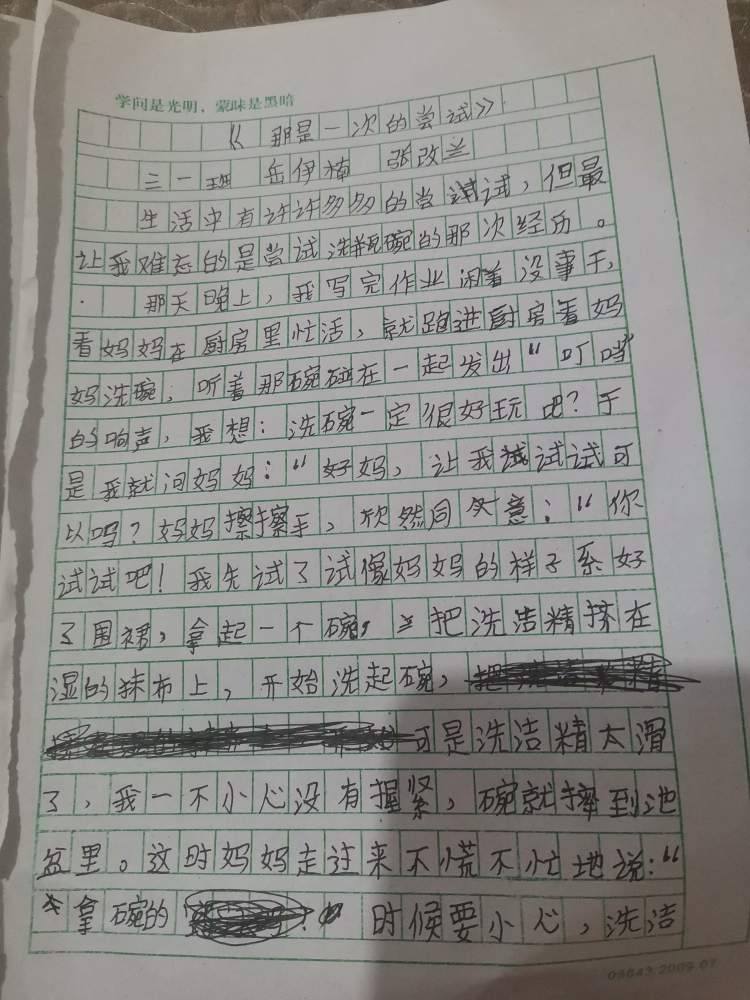 学问是光明、蒙昧是黑暗
《那是一次的尝试》
三一班 岳伊楠 张改兰
生活中有许许多多的尝试,但最
让我难忘的是尝试洗碗的那次经历。
那天晚上,我写完作业闲着没事干,
看妈妈在厨房里忙活,就跑进厨房看妈
妈洗碗,听着那碗碰在一起发出“叮当”
的响声,我想:洗碗一定很好玩吧?于
是我就问妈妈:“好妈,让我试试可
以吗?妈妈擦擦手,欣然同意:“你
试试吧!我先试了试像妈妈的样子系好
了围裙,拿起一个碗,把洗洁精挤在
湿的抹布上,开始洗起碗,
可是洗洁精太滑
了,我一不小心没有握紧,碗就摔到池
盆里。这时妈妈走过来不慌不忙地说:“
拿碗的时候要小心,洗洁
05643.2009.07